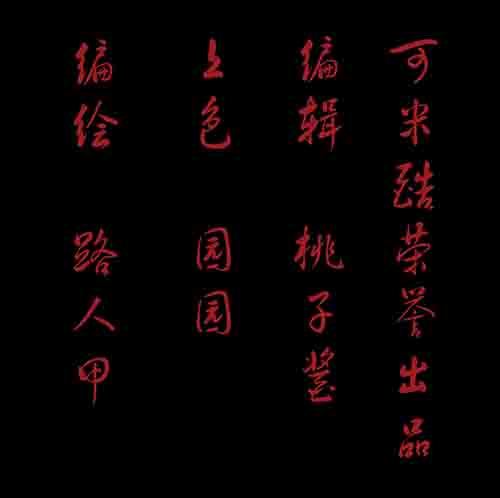 可米酷荣誉出品
编辑 桃子酱
上色 园园
编绘 路人甲